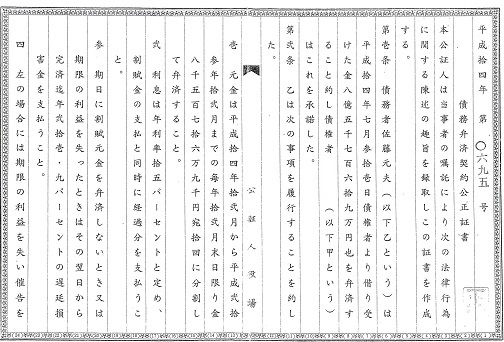 平成拾四年 第〇六九五号
債務弁済契約公正証書
本公証人は当事者の嘱託により次の法律行為
に関する陳述の趣旨を録取しこの証書を作成
する。
第壱条 債務者佐藤元夫(以下乙という)は
平成拾四年七月参拾壱日債権者より借り受
けた金八億五千七百六拾九万円也を弁済す
ること約し債権者 (以下甲という)
はこれを承諾した。
第弐条 乙は次の事項を履行することを約し
た。
公証人役場
壱 元金は平成拾四年拾弐月から平成弐拾
参年拾弐月までの毎年拾弐月末日限り金
八千五百七拾六万九千円宛拾回に分割し
て弁済すること。
弐 利息は年利率拾五パーセントと定め、
割賦金の支払と同時に経過分を支払うこ
と。
参 期日に割賦元金を弁済しないとき又は
期限の利益を失ったときはその翌日から
完済迄年弐拾壱・九パーセントの遅延損
害金を支払うこと。
四 左の場合には期限の利益を失い催告を